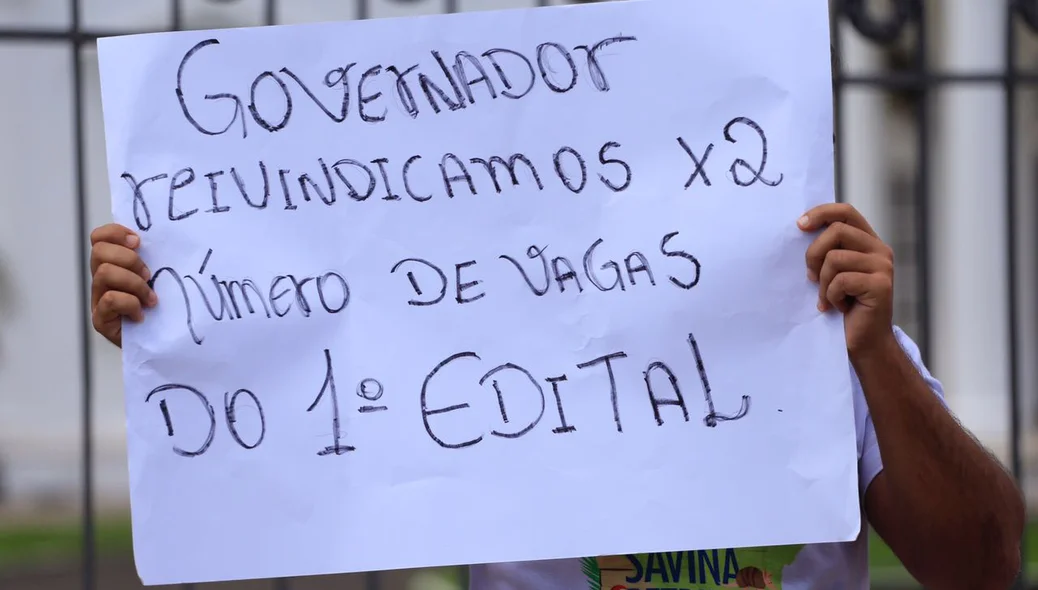 GOVERNADOR
REIVINDICAMOS X2
NÚMERO DE VAGAS
DO 1º EDITAL.
SAVINA